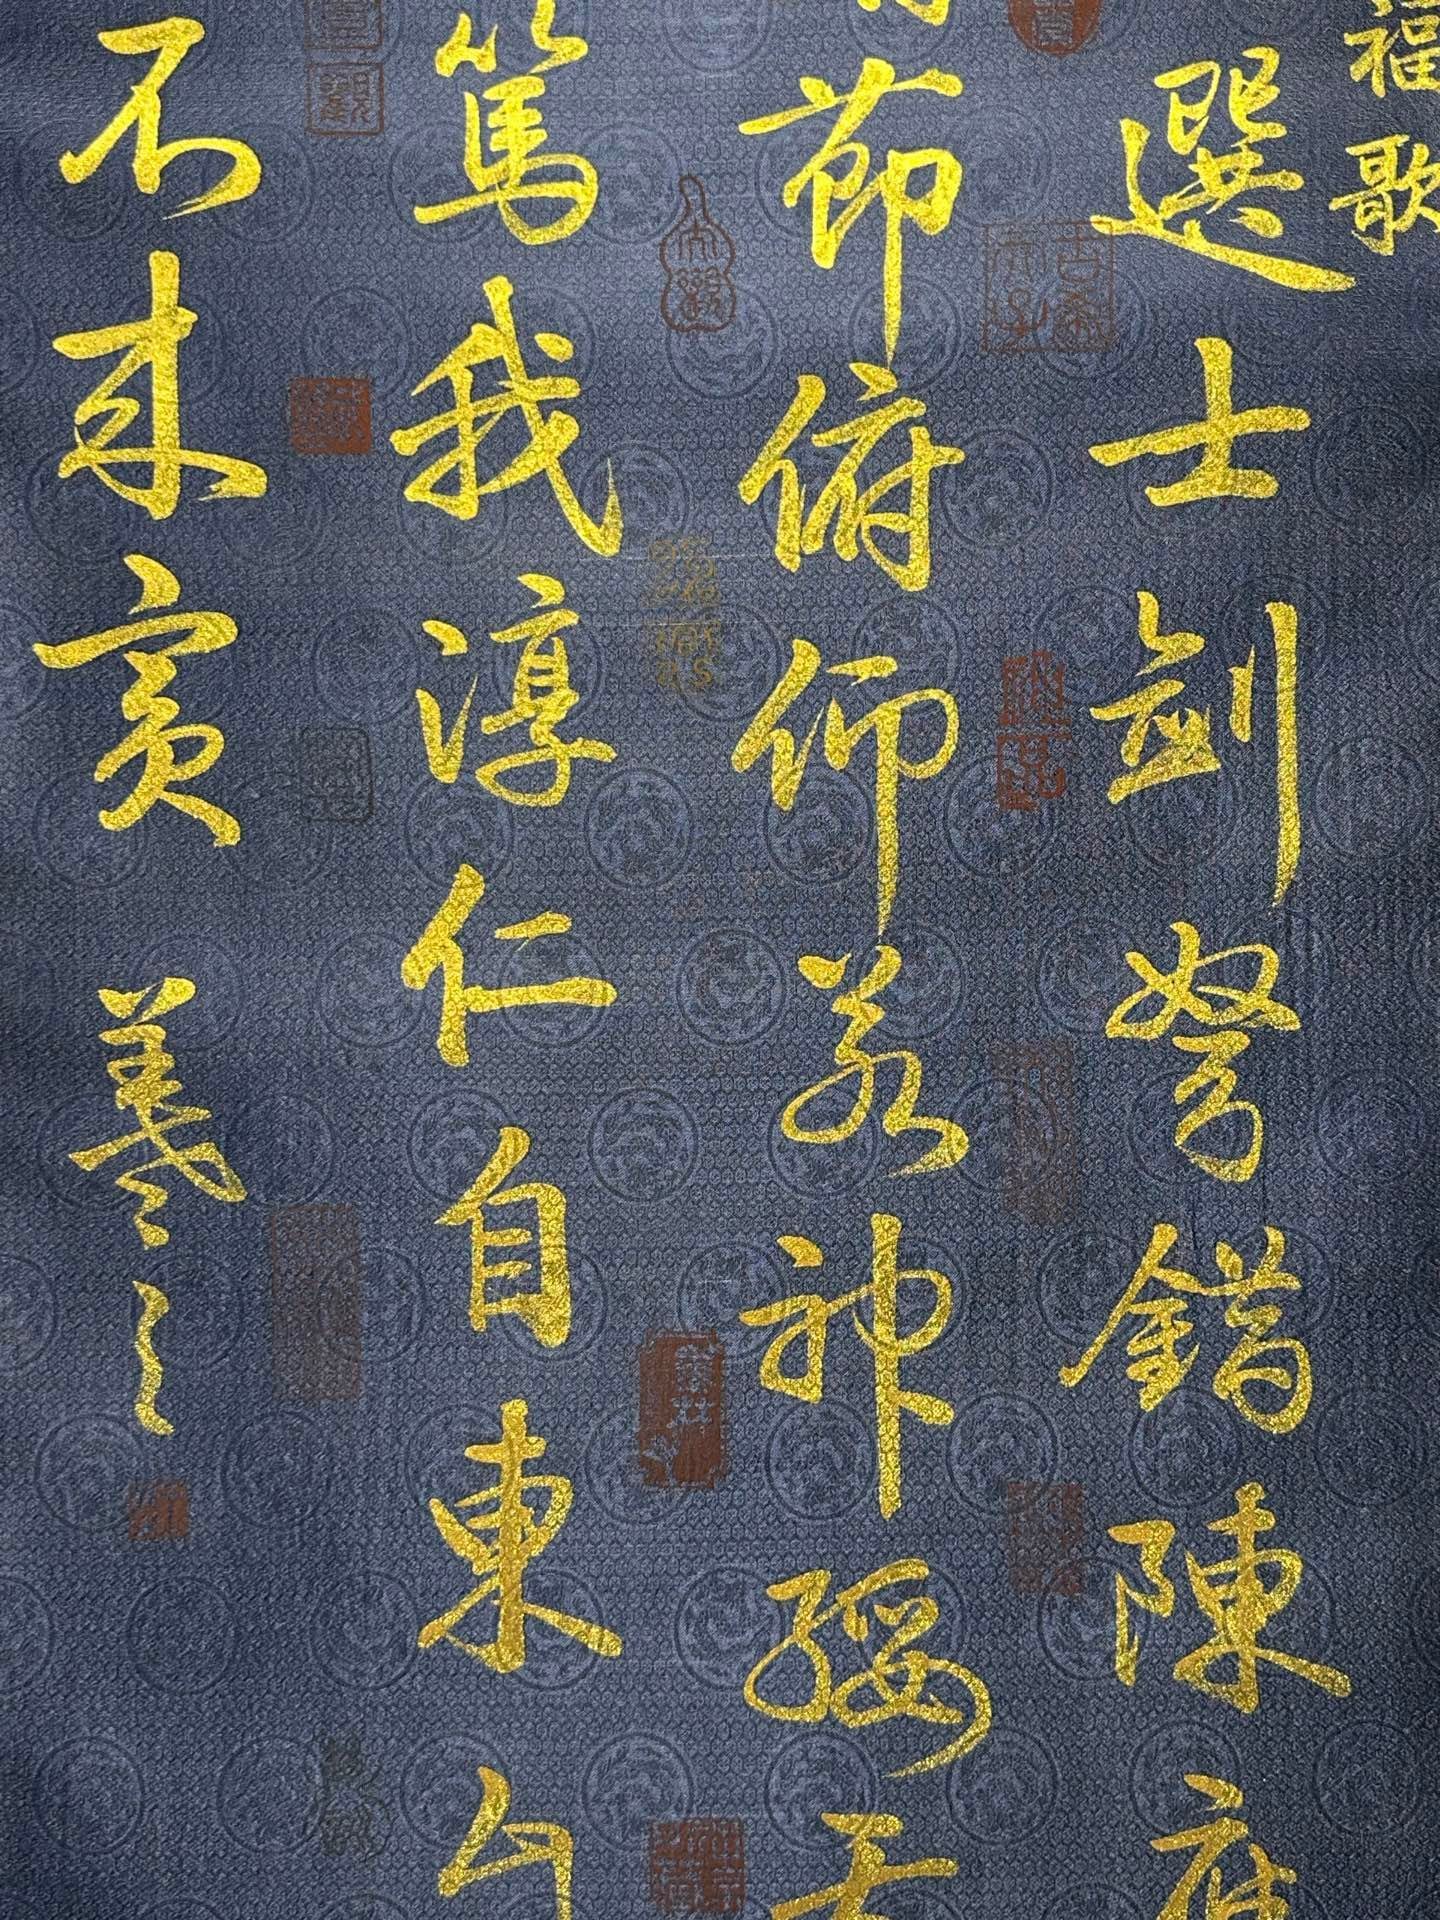 福歌
選士劍弩錯陳
節俯仰若神綏
篤我淳仁自東
不來賓
羲之
古希天子